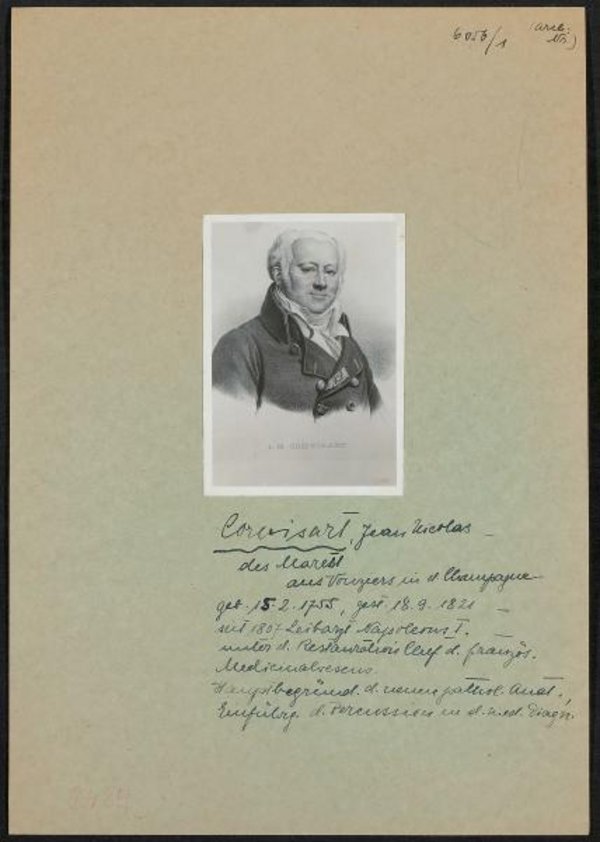 6056/1
Corvisart, Jean Nicolas –
des Marest
aus Vouziers in d Champagne –
geb. 15.2.1755, gest. 18.9.1821 –
seit 1807 Leibarzt Napoleons I.
unter d. Restauration Chef d. französ.
Medicinalwesens
Hauptbegründ. d. neuen pathol. Anat.,
Einführg. d. Percussion in d. med. Diagn.